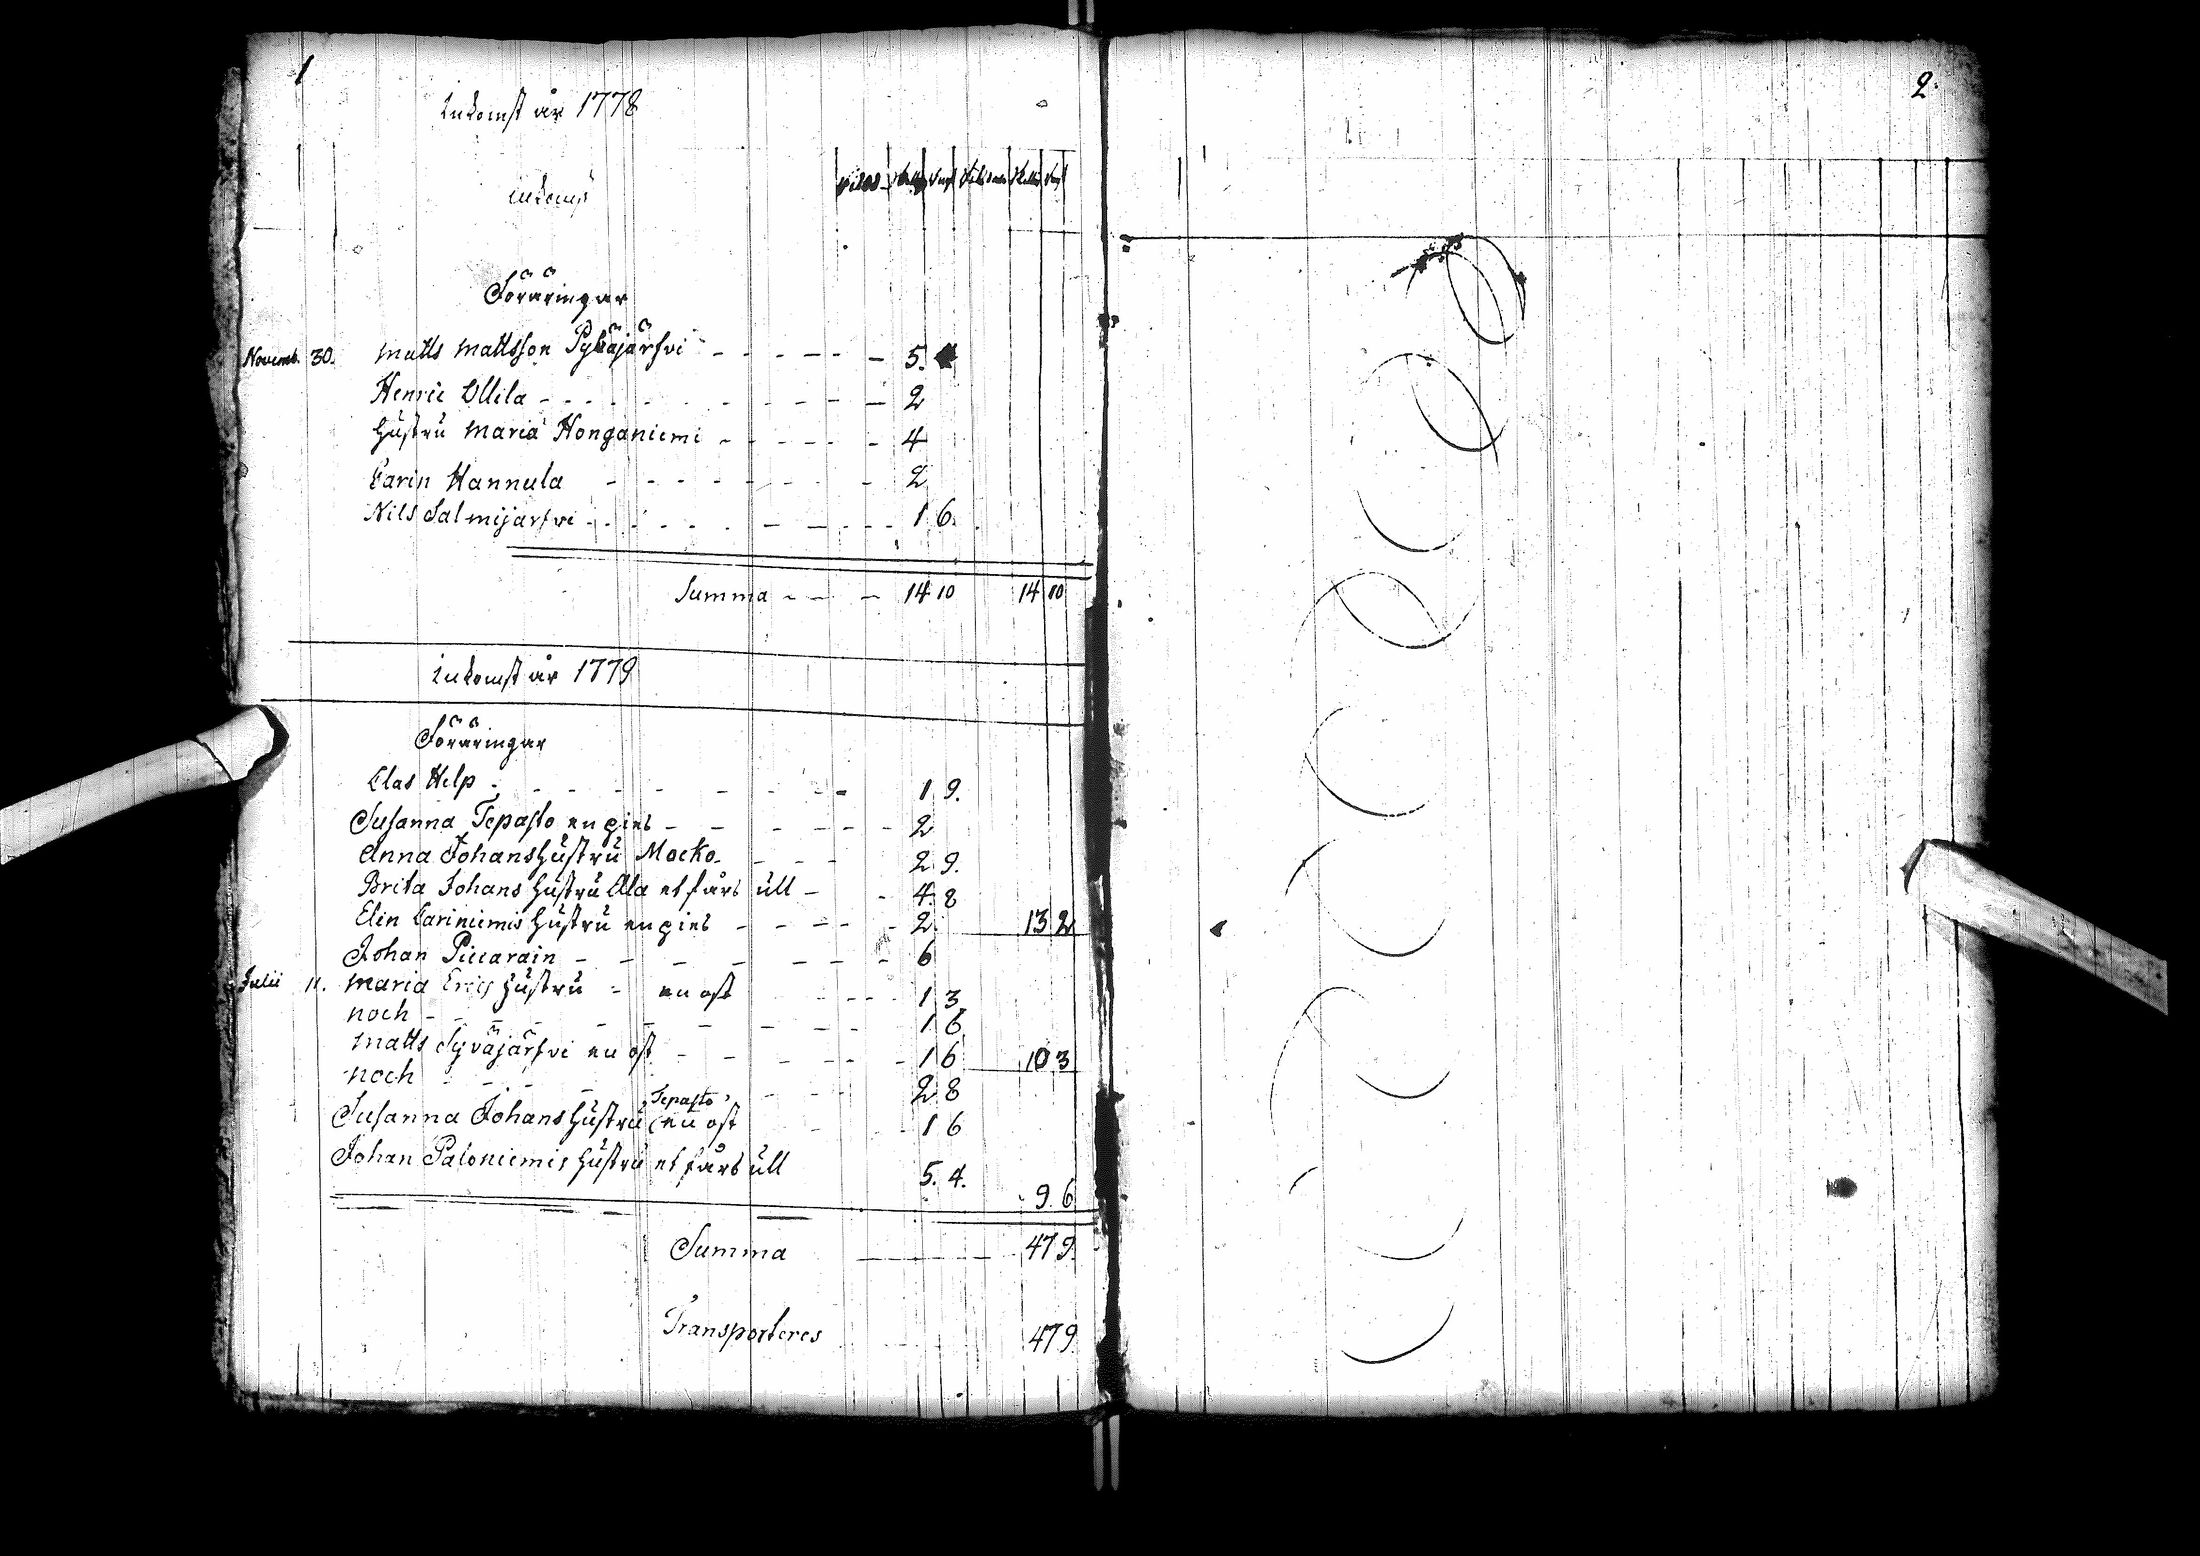 1
Inkomst år 1778
Inkomst
Föräringar
Novemb. 30. Matts Mattsson Pyhäjärfvi - - - - - - 5.
Henric Ollila - - - - - - - - - - 2
Hustru Maria Honganiemi - - - - - 4
Carin Hannula - - - - - - - 2
Nils Salmijärfvi - - - - - - - - 1 6.
Summa - - - 14 10 14 10
Inkomst år 1779
Föräringar
Clas Help - - - - - - - - - 1 9.
Susanna Tepasto en - - - - - - 2
Anna Johans Hustru Mocko - - - 2 9.
Brita Johans Hustru Ala et fårs ull - - 4 8
Elin Cariniemis Hustru en - - - - - 2. 13 2
Johan Piccarain - - - - - - - 6
Julii 11. Maria Erics Hustru - en ost - - - - 1 3
noch - - - - - - - - - 1 6
Matts Syväjärfvi en ost - - - - - - 1 6 10 3
noch - - - - - - - 2 8
Tepasto
Susanna Johans Hustru en ost - - - 1 6
Johan Paloniemis Hustru et fårs ull 5. 4.
9. 6
Summa - - - 47 9.
Transporteres 47 9.
2.